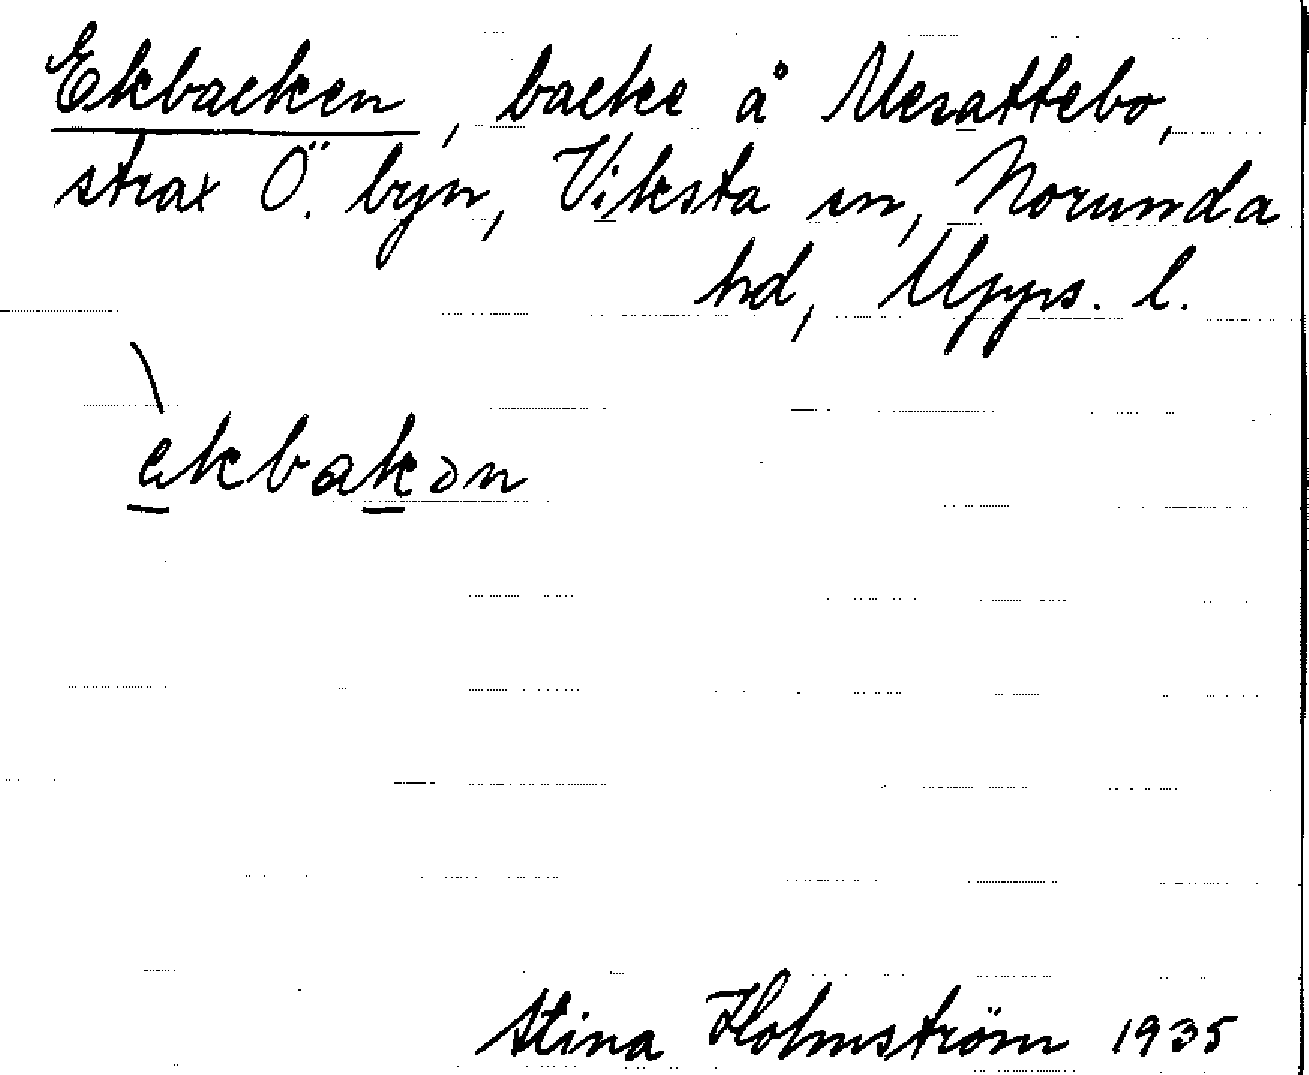 Ekbacken, backe å Merattebo,
strax Ö. byn, Viksta sn, Norunda
hd, Upps. l.
ekbakən
Stina Holmström 1935